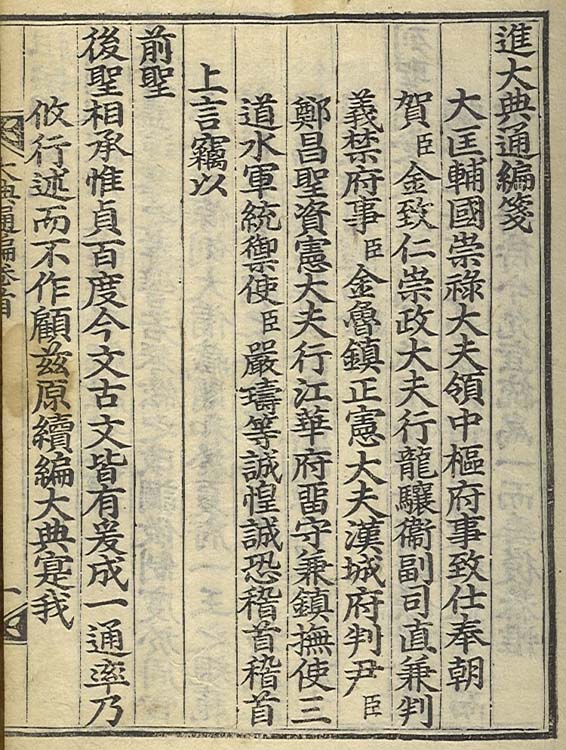 進大典通編箋
大匡輔國崇祿大夫領中樞府事致仕奉朝
賀臣金致仁崇政大夫行龍驤衞副司直兼判
義禁府事臣金魯鎮正憲大夫漢城府判尹臣
鄭昌聖資憲大夫行江華府留守兼鎮撫使三
道水軍統禦使臣嚴璹等誠惶誠恐稽首稽首
上言竊以
前聖
後聖相承惟貞百度今文古文皆有爰成一通率乃
攸行述而不作顧兹原續編大典寔我
大典通編卷首
一